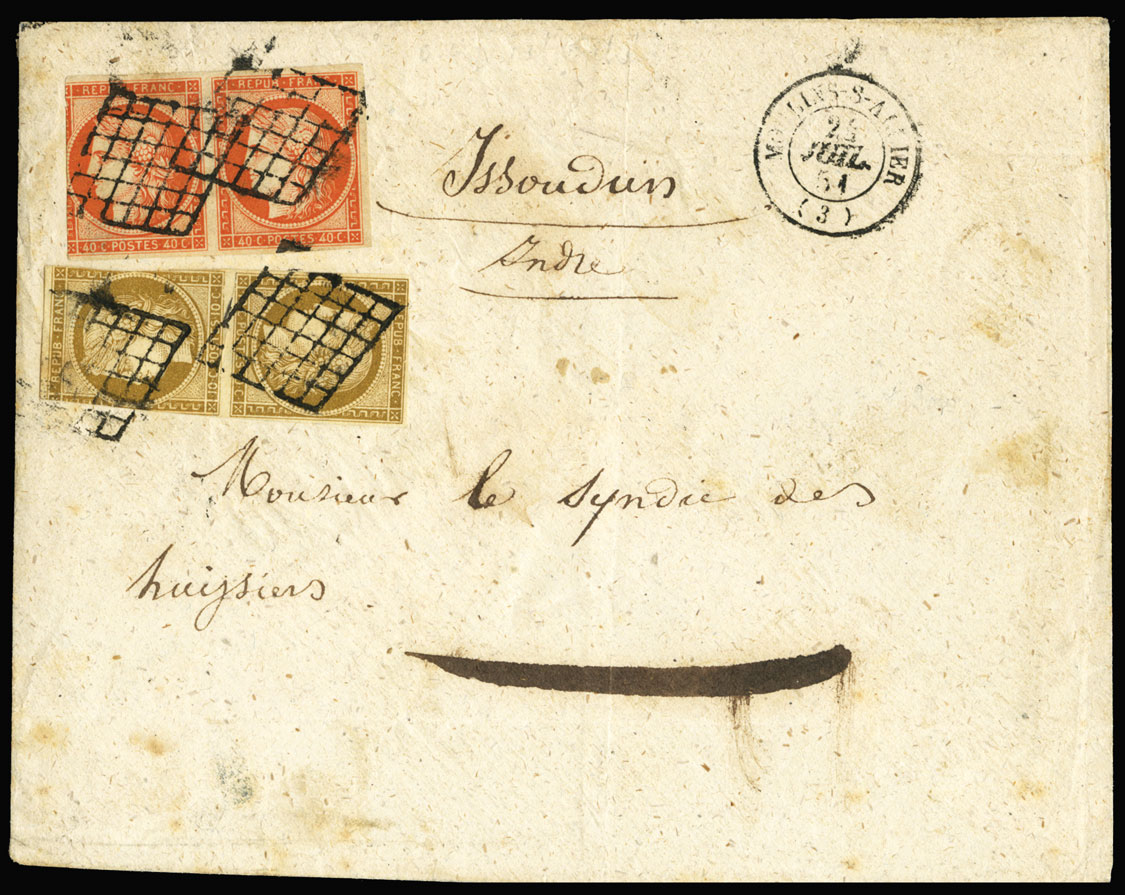 REPUB · FRANC · REPUB · FRANC ·
40 C · POSTES · 40 C · 40 C · POSTES · 40 C ·
REPUB · FRANC · REPUB · FRANC ·
MOULINS-S-ALLIER
JUIL.
51
(3)
Issoudun
Indre
Monsieur le Syndic des
huissiers